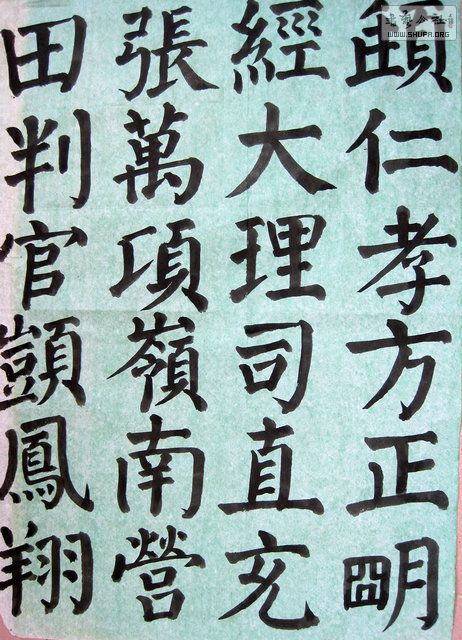 仁孝方正朙
經大理司直充
張萬頃嶺南營
田判官顗鳳翔
書藝公社
WWW.SHUFA.ORG